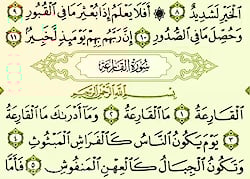 ٱلْخَيْرِ لَشَدِيدٌ ٨ ۞ أَفَلَا يَعْلَمُ إِذَا بُعْثِرَ مَا فِى ٱلْقُبُورِ ٩
وَحُصِّلَ مَا فِى ٱلصُّدُورِ ١٠ إِنَّ رَبَّهُم بِهِمْ يَوْمَئِذٍ لَّخَبِيرٌۢ ١١
سُورَةُ القَارِعَة
بِسْمِ ٱللَّهِ ٱلرَّحْمَٰنِ ٱلرَّحِيمِ
ٱلْقَارِعَةُ ١ مَا ٱلْقَارِعَةُ ٢ وَمَآ أَدْرَىٰكَ مَا ٱلْقَارِعَةُ
٣ يَوْمَ يَكُونُ ٱلنَّاسُ كَٱلْفَرَاشِ ٱلْمَبْثُوثِ ٤
وَتَكُونُ ٱلْجِبَالُ كَٱلْعِهْنِ ٱلْمَنفُوشِ ٥ فَأَمَّا